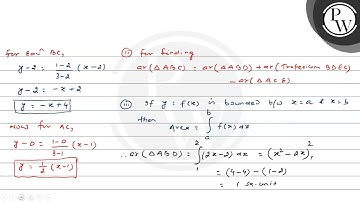 for Eqn BC,
y-2 = 1-2/3-2 (x-2)
y-2 = -x+2
y = -x+4
Now for AC,
y-0 = 1-0/3-1 (x-1)
y = 1/2 (x-1)
(ii) for finding
ar(ΔABC) = ar(ΔABD) + ar(Trapezium BDEC)
- ar(ΔACE)
(iii) If y = f(x) is bounded b/w x=a & x=b
then
Area = ∫ₐᵇ f(x) dx
∴ ar(ΔABD) = ∫₁² (2x-2) dx = (x²-2x)₁²
= (4-4) - (1-2)
= 1 sq-unit
PW